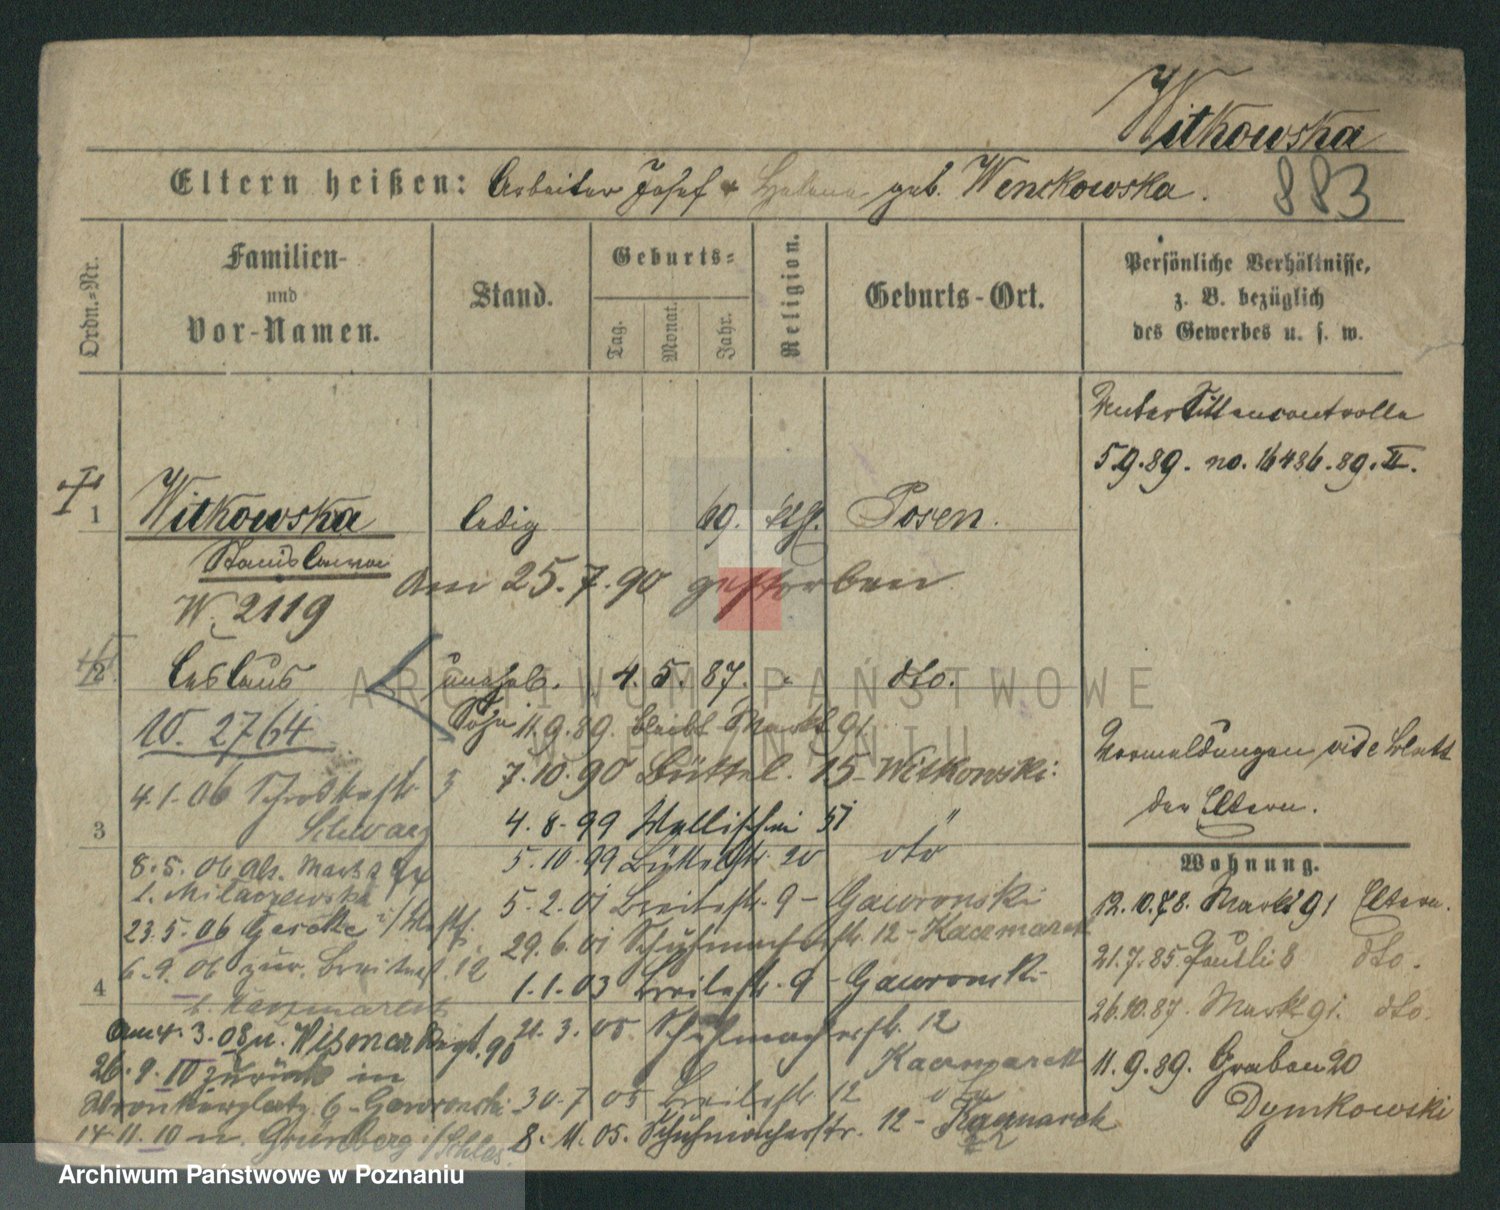 Witkowska
883
Eltern heißen: Arbeiter Josef & Helena geb. Wenckowska.
Ordn.=Nr.
Familien- und Vor-Namen.
Stand.
Geburts=
Tag.
Monat.
Jahr.
Religion.
Geburts-Ort.
Persönliche Verhältnisse,
z. B. bezüglich
des Gewerbes u. s. w.
Unter Sittencontrolle
5.9.89. no. 16436.89.II.
1 Witkowska ledig 69. kth. Posen.
Stanislawa
am 25.7.90 gestorben
W. 2119
2 Ceslaus unehel. 4. 5. 87. dto.
Sohn
11.9.89. bleibt Markt 91
W. 2764
7.10.90 Büttel. 15 - Witkowski.
Vormeldungen vide Blatt
der Eltern.
4.1.06 Schrodkastr. 3
Schwarz
4.8.99 Wallischei 51 "
3
5.10.99 Büttelstr. 20 dto
Wohnung.
8.5.06 Als. Markt
5.2.01 Breitestr. 9 - Gawronski
12.10.78. Markt 91 Eltern.
23.5.06
29.6.01 Schuhmacherstr. 12 - Kaczmarek
21.7.85. Pauli 8 dto.
6.9.06 zur. Breitestr. 12
1.1.03 Breitestr. 9 - Gawronski
4
b. Kaczmarek
26.10.87. Markt 91. dto.
Am 4.3.08 n. Weimar 90
21.3.05 Schuhmacherstr. 12
Kaczmarek
26.9.10 zurück in
11.9.89. Graben 20
Dymkowski
Wronkerplatz 6 - Gawronski
30.7.05 Breitestr. 12
14.11.10 n. Grünberg i/Schles.
8.11.05. Schuhmacherstr. 12 - Kaczmarek
ARCHIWUM PAŃSTWOWE
W POZNANIU
Archiwum Państwowe w Poznaniu